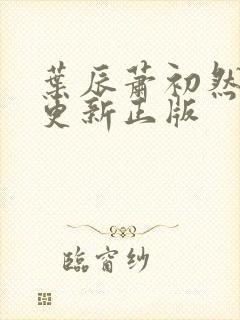 葉辰蕭初然
更新正版
臨窗纱